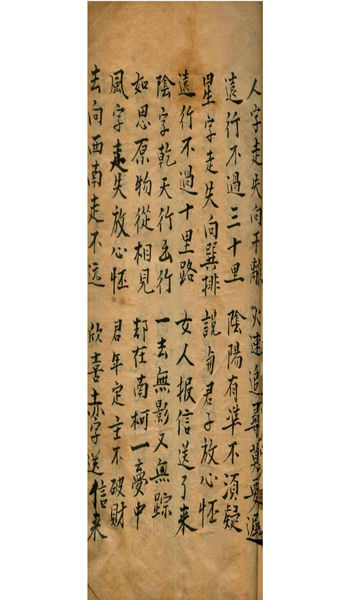 人字走失向于離 速追尋莫要遲
遠行不過三十里 陰陽有準不須疑
星字走失向巽排 說与君子放心怀
遠行不過十里路 女人报信送了来
陰字乾天行行 一去無影又無踪
如思原物從相見 却在南柯一夢中
風字走失放心怀 君年定主不破財
去向西南走不远 欣喜赤字送信来